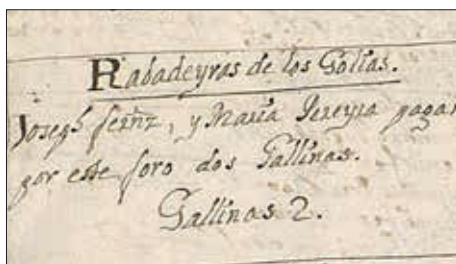 Rabadeyras de los Gollas.
Joseph Fernz, y Maria Pereyra pagan
por este foro dos Gallinas.
Gallinas 2.